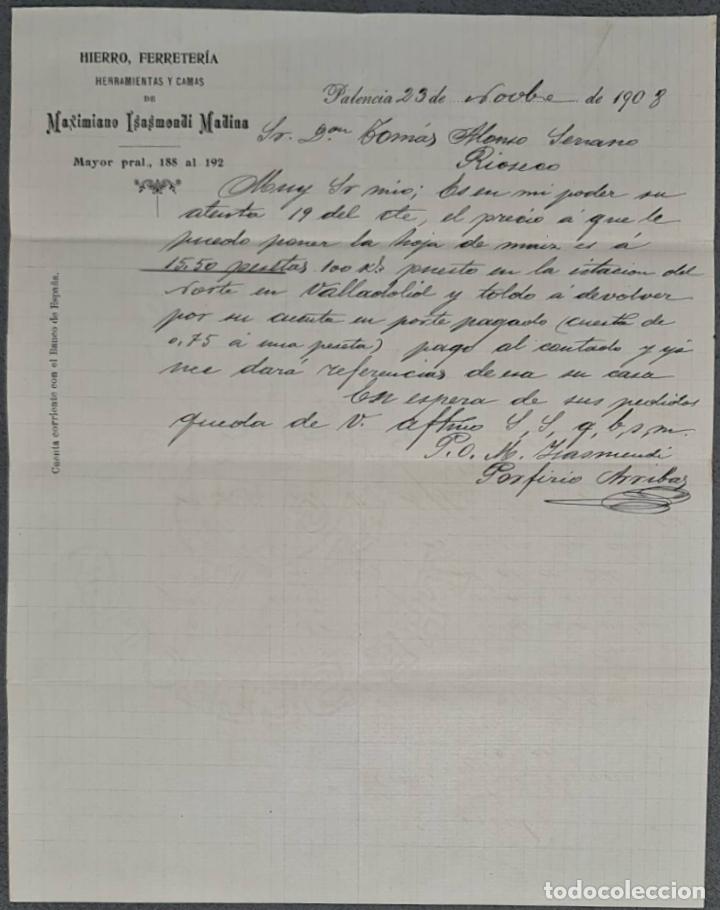 HIERRO, FERRETERÍA
HERRAMIENTAS Y CAMAS
DE
Maximiano Isasmendi Madina
Mayor pral., 188 al 192
Cuenta corriente con el Banco de España.
Palencia 23 de Novbre de 1908
Sr. Don Tomás Alonso Serrano
Rioseco
Muy Sr mio; Es en mi poder su
atenta 19 del cte, el precio á que le
puedo poner la hoja de maiz es á
15,50 pesetas 100 Ks puesto en la estacion del
Norte en Valladolid y toldo á devolver
por su cuenta en porte pagado (cuesta de
0,75 á una peseta) pago al contado y yá
me dará referencias de esa su casa
En espera de sus pedidos
queda de V. aftmo S, S, q, b, s, m.
P. O. M. Isasmendi
Porfirio Arribas
todocoleccion